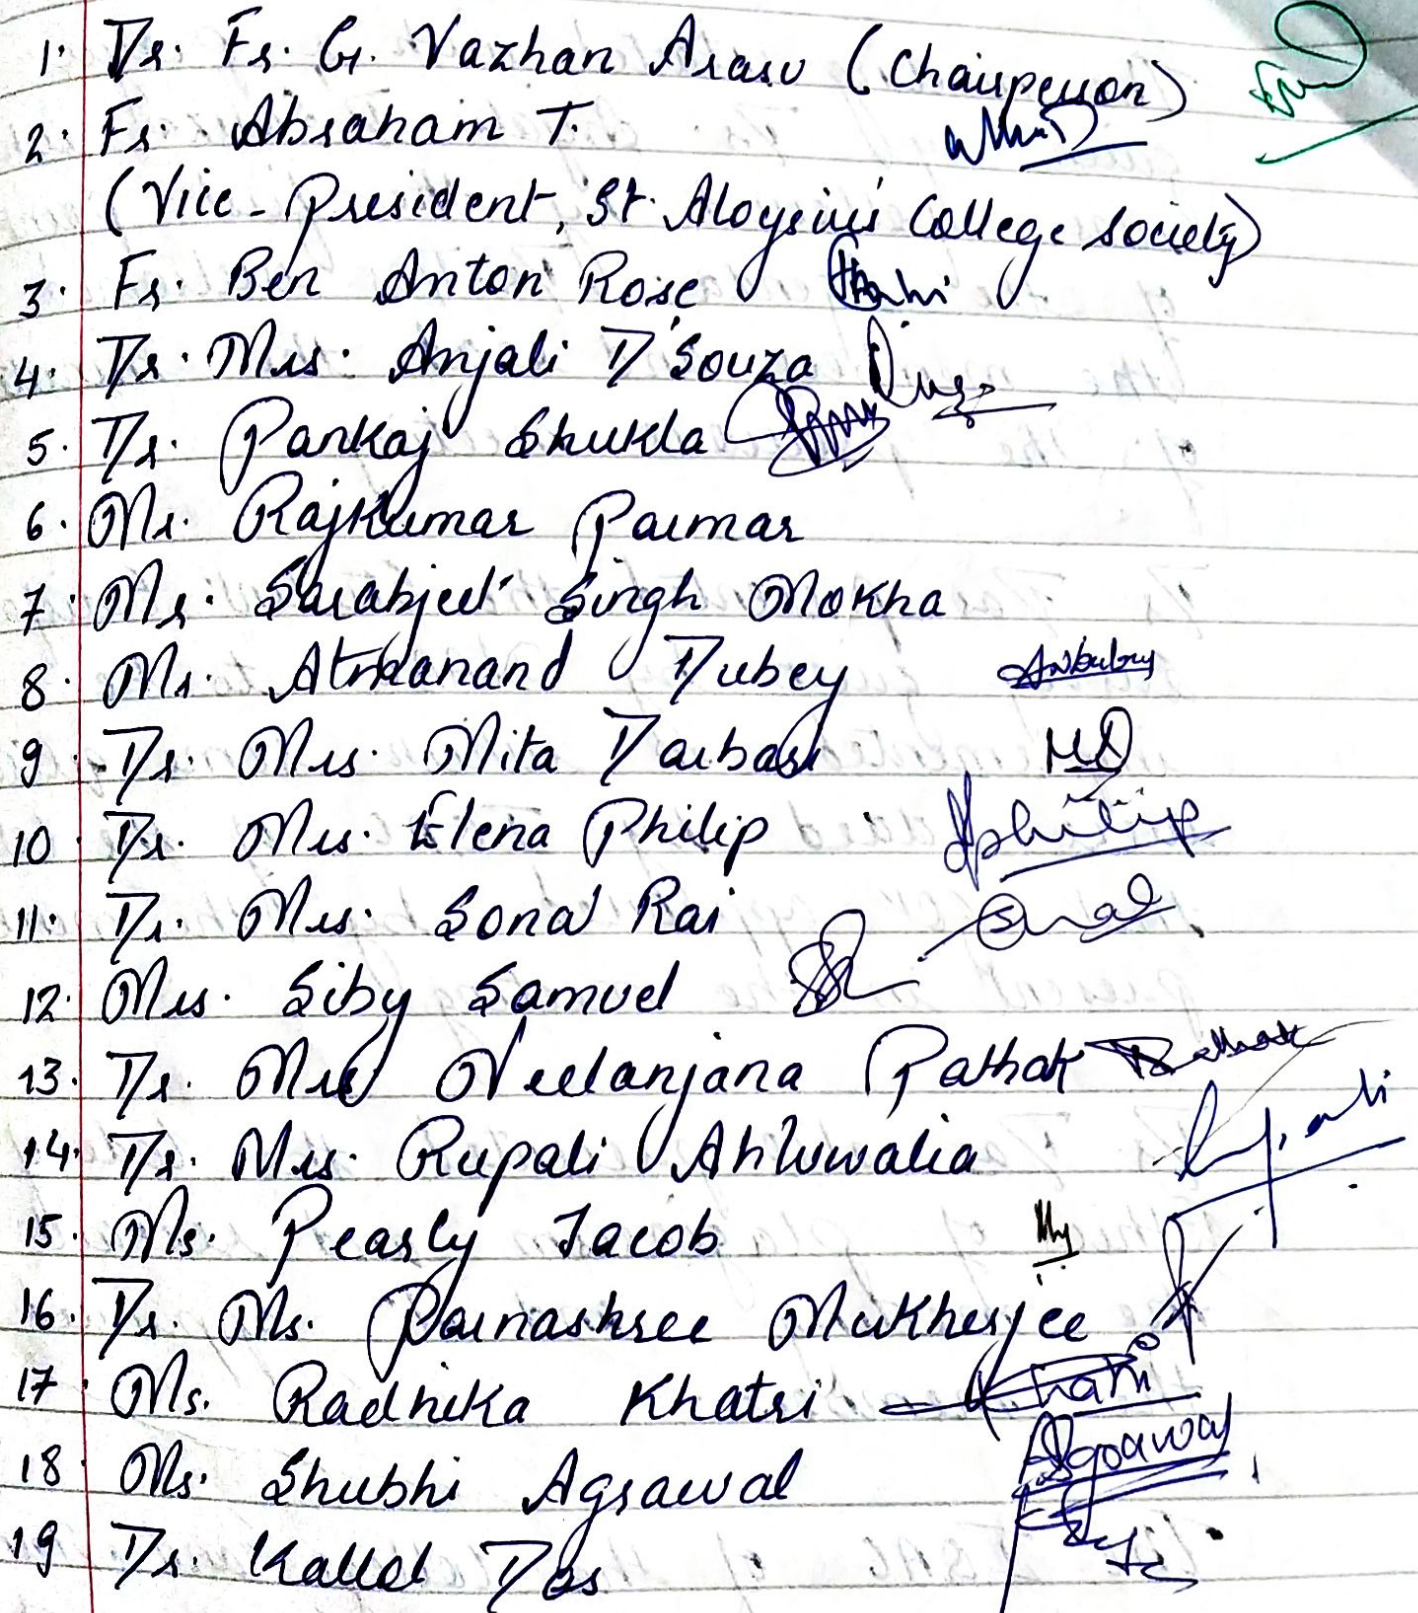 1. Dr. Fr. G. Vazhan Arasu (Chairperson)
2. Fr. Abraham T.
(Vice-President, St. Aloysius' College Society)
3. Fr. Ben Anton Rose
4. Dr. Mrs. Anjali D'Souza
5. Dr. Pankaj Shukla
6. Mr. Rajkumar Parmar
7. Mr. Sarabjeet Singh Mokha
8. Mr. Atmanand Dubey
9. Dr. Mrs. Mita Darbari MD
10. Dr. Mrs. Elena Philip Philip
11. Dr. Mrs. Sonal Rai
12. Mrs. Siby Samuel
13. Dr. Mrs Neelanjana Pathak Pathak
14. Dr. Mrs. Rupali Ahluwalia
15. Ms. Pearly Jacob
16. Dr. Ms. Parnashree Mukherjee
17. Ms. Radhika Khatri Khatri
18. Ms. Shubhi Agrawal Agrawal
19 Dr. Kallol Das